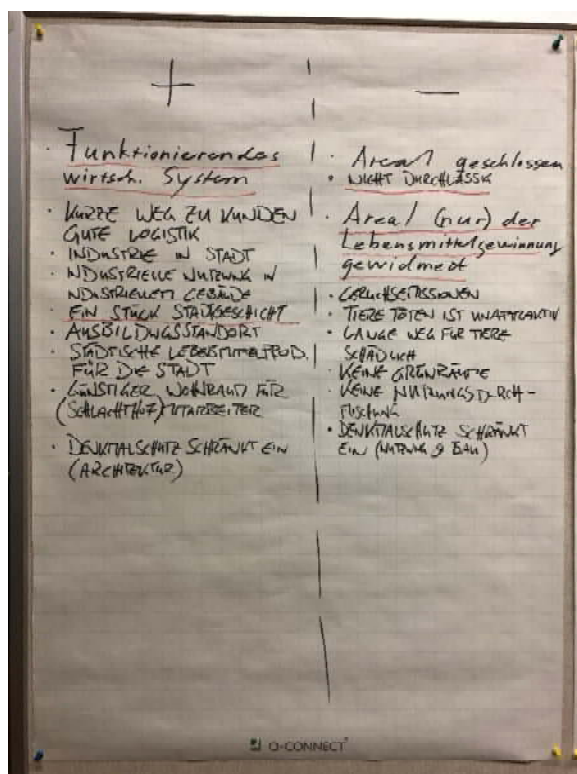 +
· Funktionierendes
wirtsch. System
· KURZE WEG ZU KUNDEN
GUTE LOGISTIK
· INDUSTRIE IN STADT
· INDUSTRIELLE NUTZUNG IN
INDUSTRIELLEM GEBÄUDE
· EIN STÜCK STADTGESCHICHT
· AUSBILDUNGSSTANDORT
· STÄDTISCHE LEBENSMITTELPROD.
FÜR DIE STADT
· GÜNSTIGER WOHNRAUM FÜR
(SCHLACHTHOF) MITARBEITER
· DENKMALSCHUTZ SCHRÄNKT EIN
(ARCHITEKTUR)
—
· Areal geschlossen
· NICHT DURCHLÄSSIG
· Areal (nur) der
Lebensmittelgewinnung
gewidmet
· GERUCHSEMISSIONEN
· TIERE TÖTEN IST UNATTRAKTIV
· LANGE WEG FÜR TIERE
SCHÄDLICH
· KEINE GRÜNRÄUME
· KEINE NUTZUNGSDURCH-
MISCHUNG
· DENKMALSCHUTZ SCHRÄNKT
EIN (NUTZUNG & BAU)
Q-CONNECT